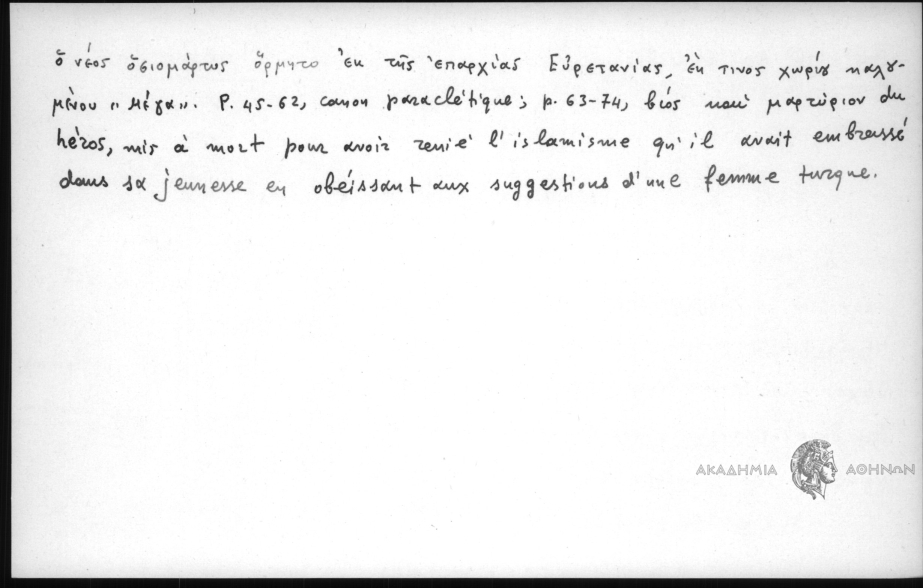 ὁ νέος ὁσιομάρτυς ὅρμητο ἐκ τῆς ἐπαρχίας Εὐρετανίας, ἔκ τινος χωρίου καλου-
μένου "Μέγα". P. 45-62, canon paraclétique; p. 63-74, βίος καὶ μαρτύριον du
héros, mis à mort pour avoir renié l'islamisme qu'il avait embrassé
dans sa jeunesse en obéissant aux suggestions d'une femme turque.
ΑΚΑΔΗΜΙΑ ΑΘΗΝΩΝ